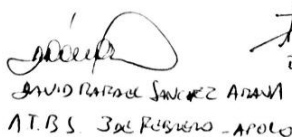 DAVID RAFAEL SANCHEZ ARANA
A.T.B.S. 3 DE FEBRERO - APOLO